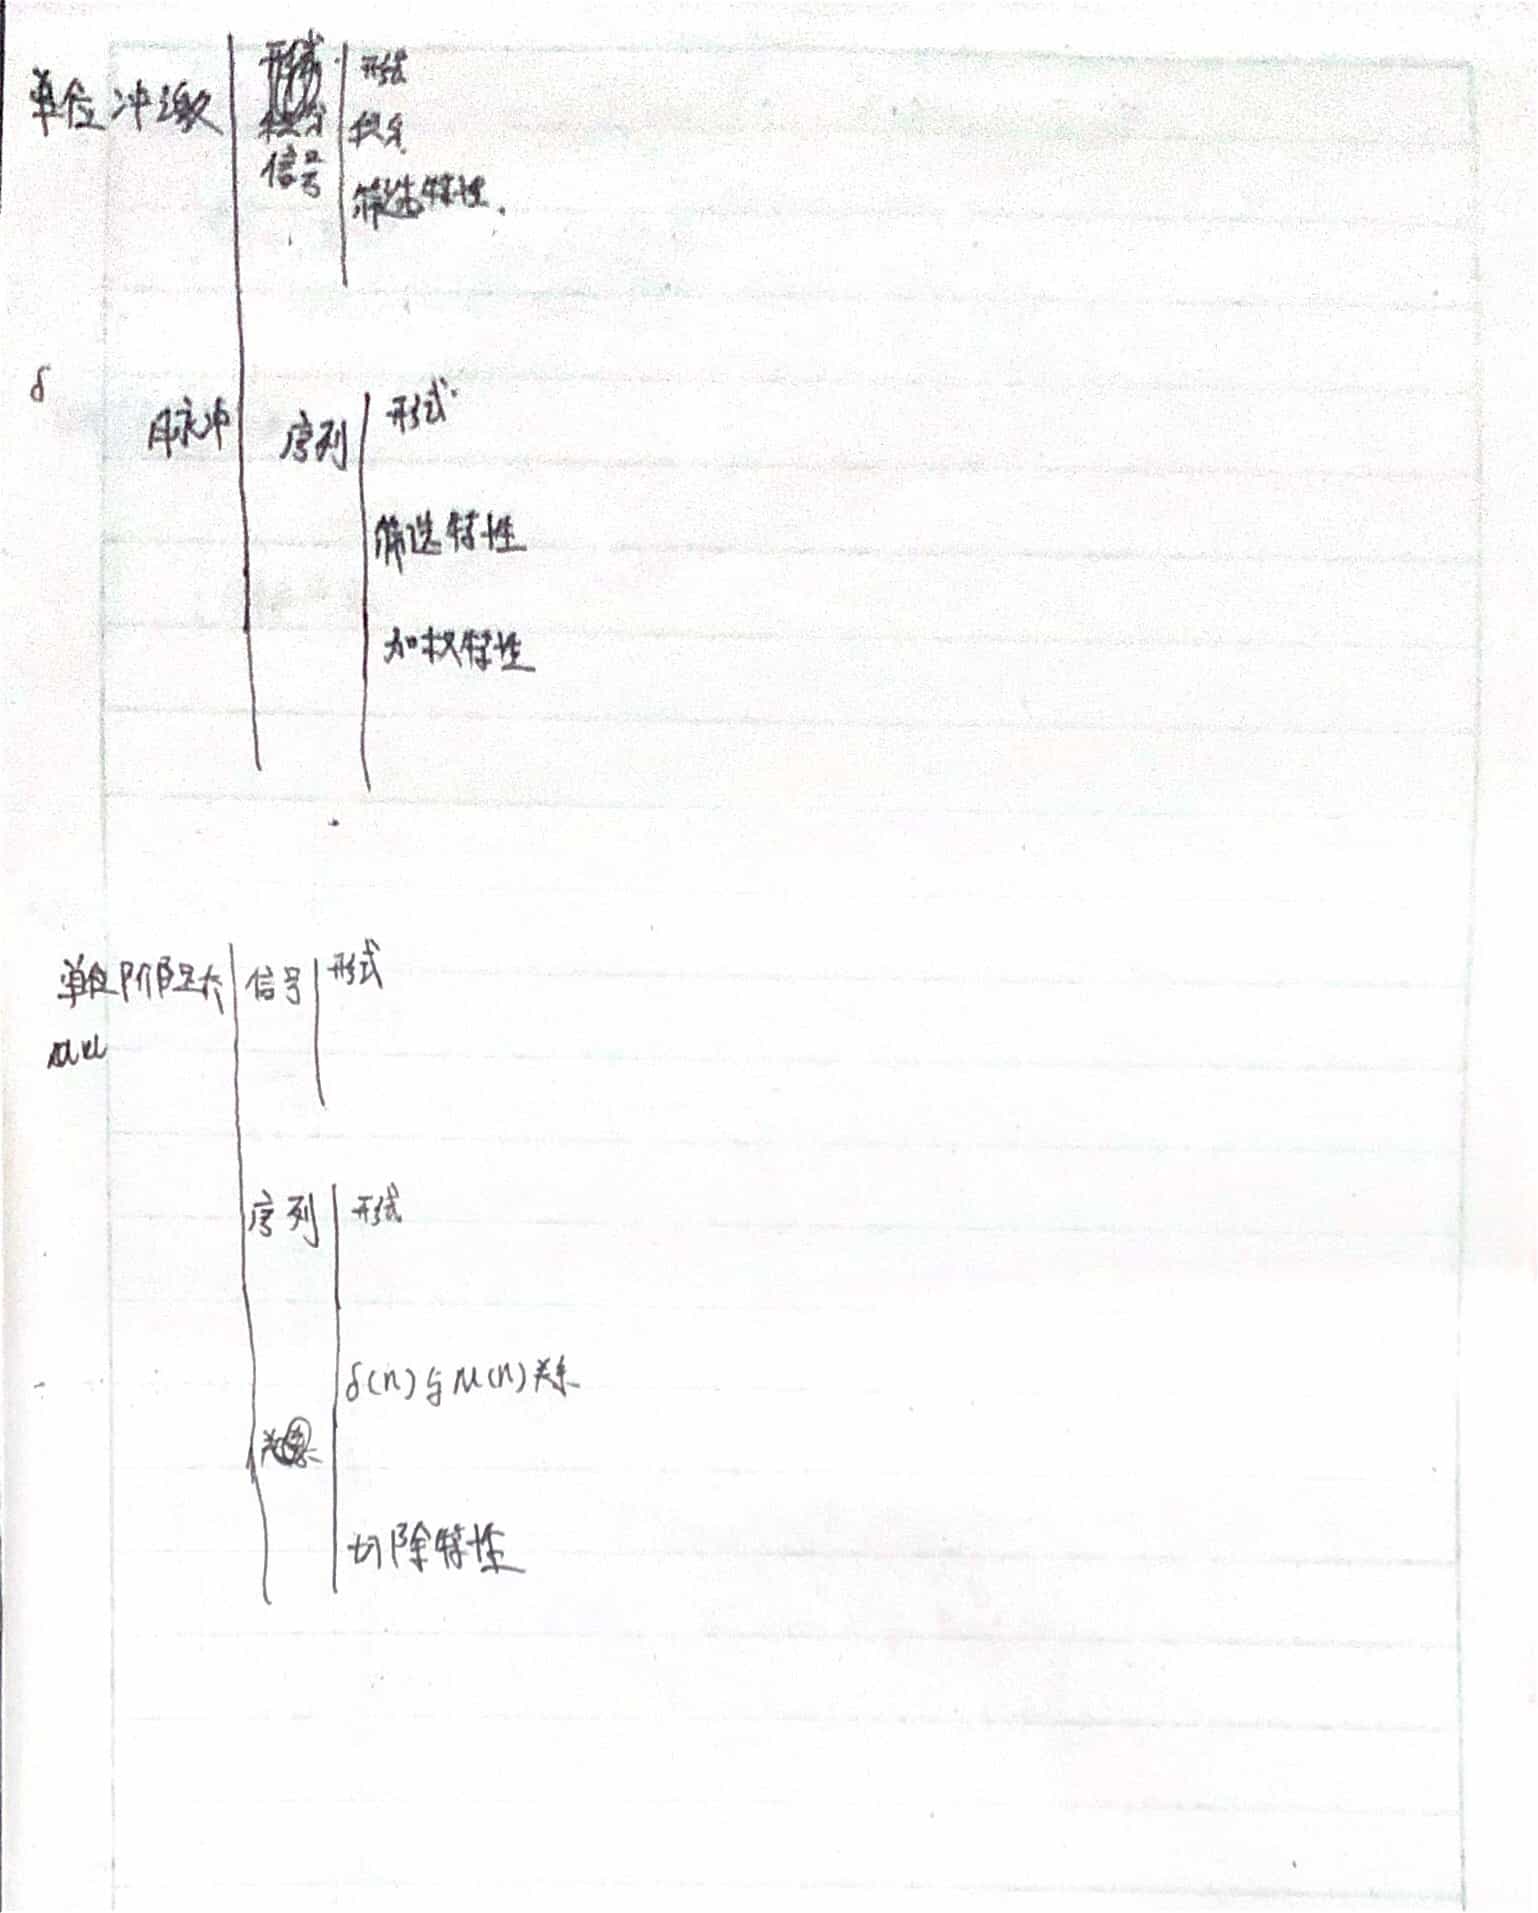 单位冲激
信号
形式
积分
筛选特性.
δ
脉冲
序列
形式
筛选特性
加权特性
单位阶跃
u
信号
形式
序列
形式
δ(n)与u(n)关系
切除特性